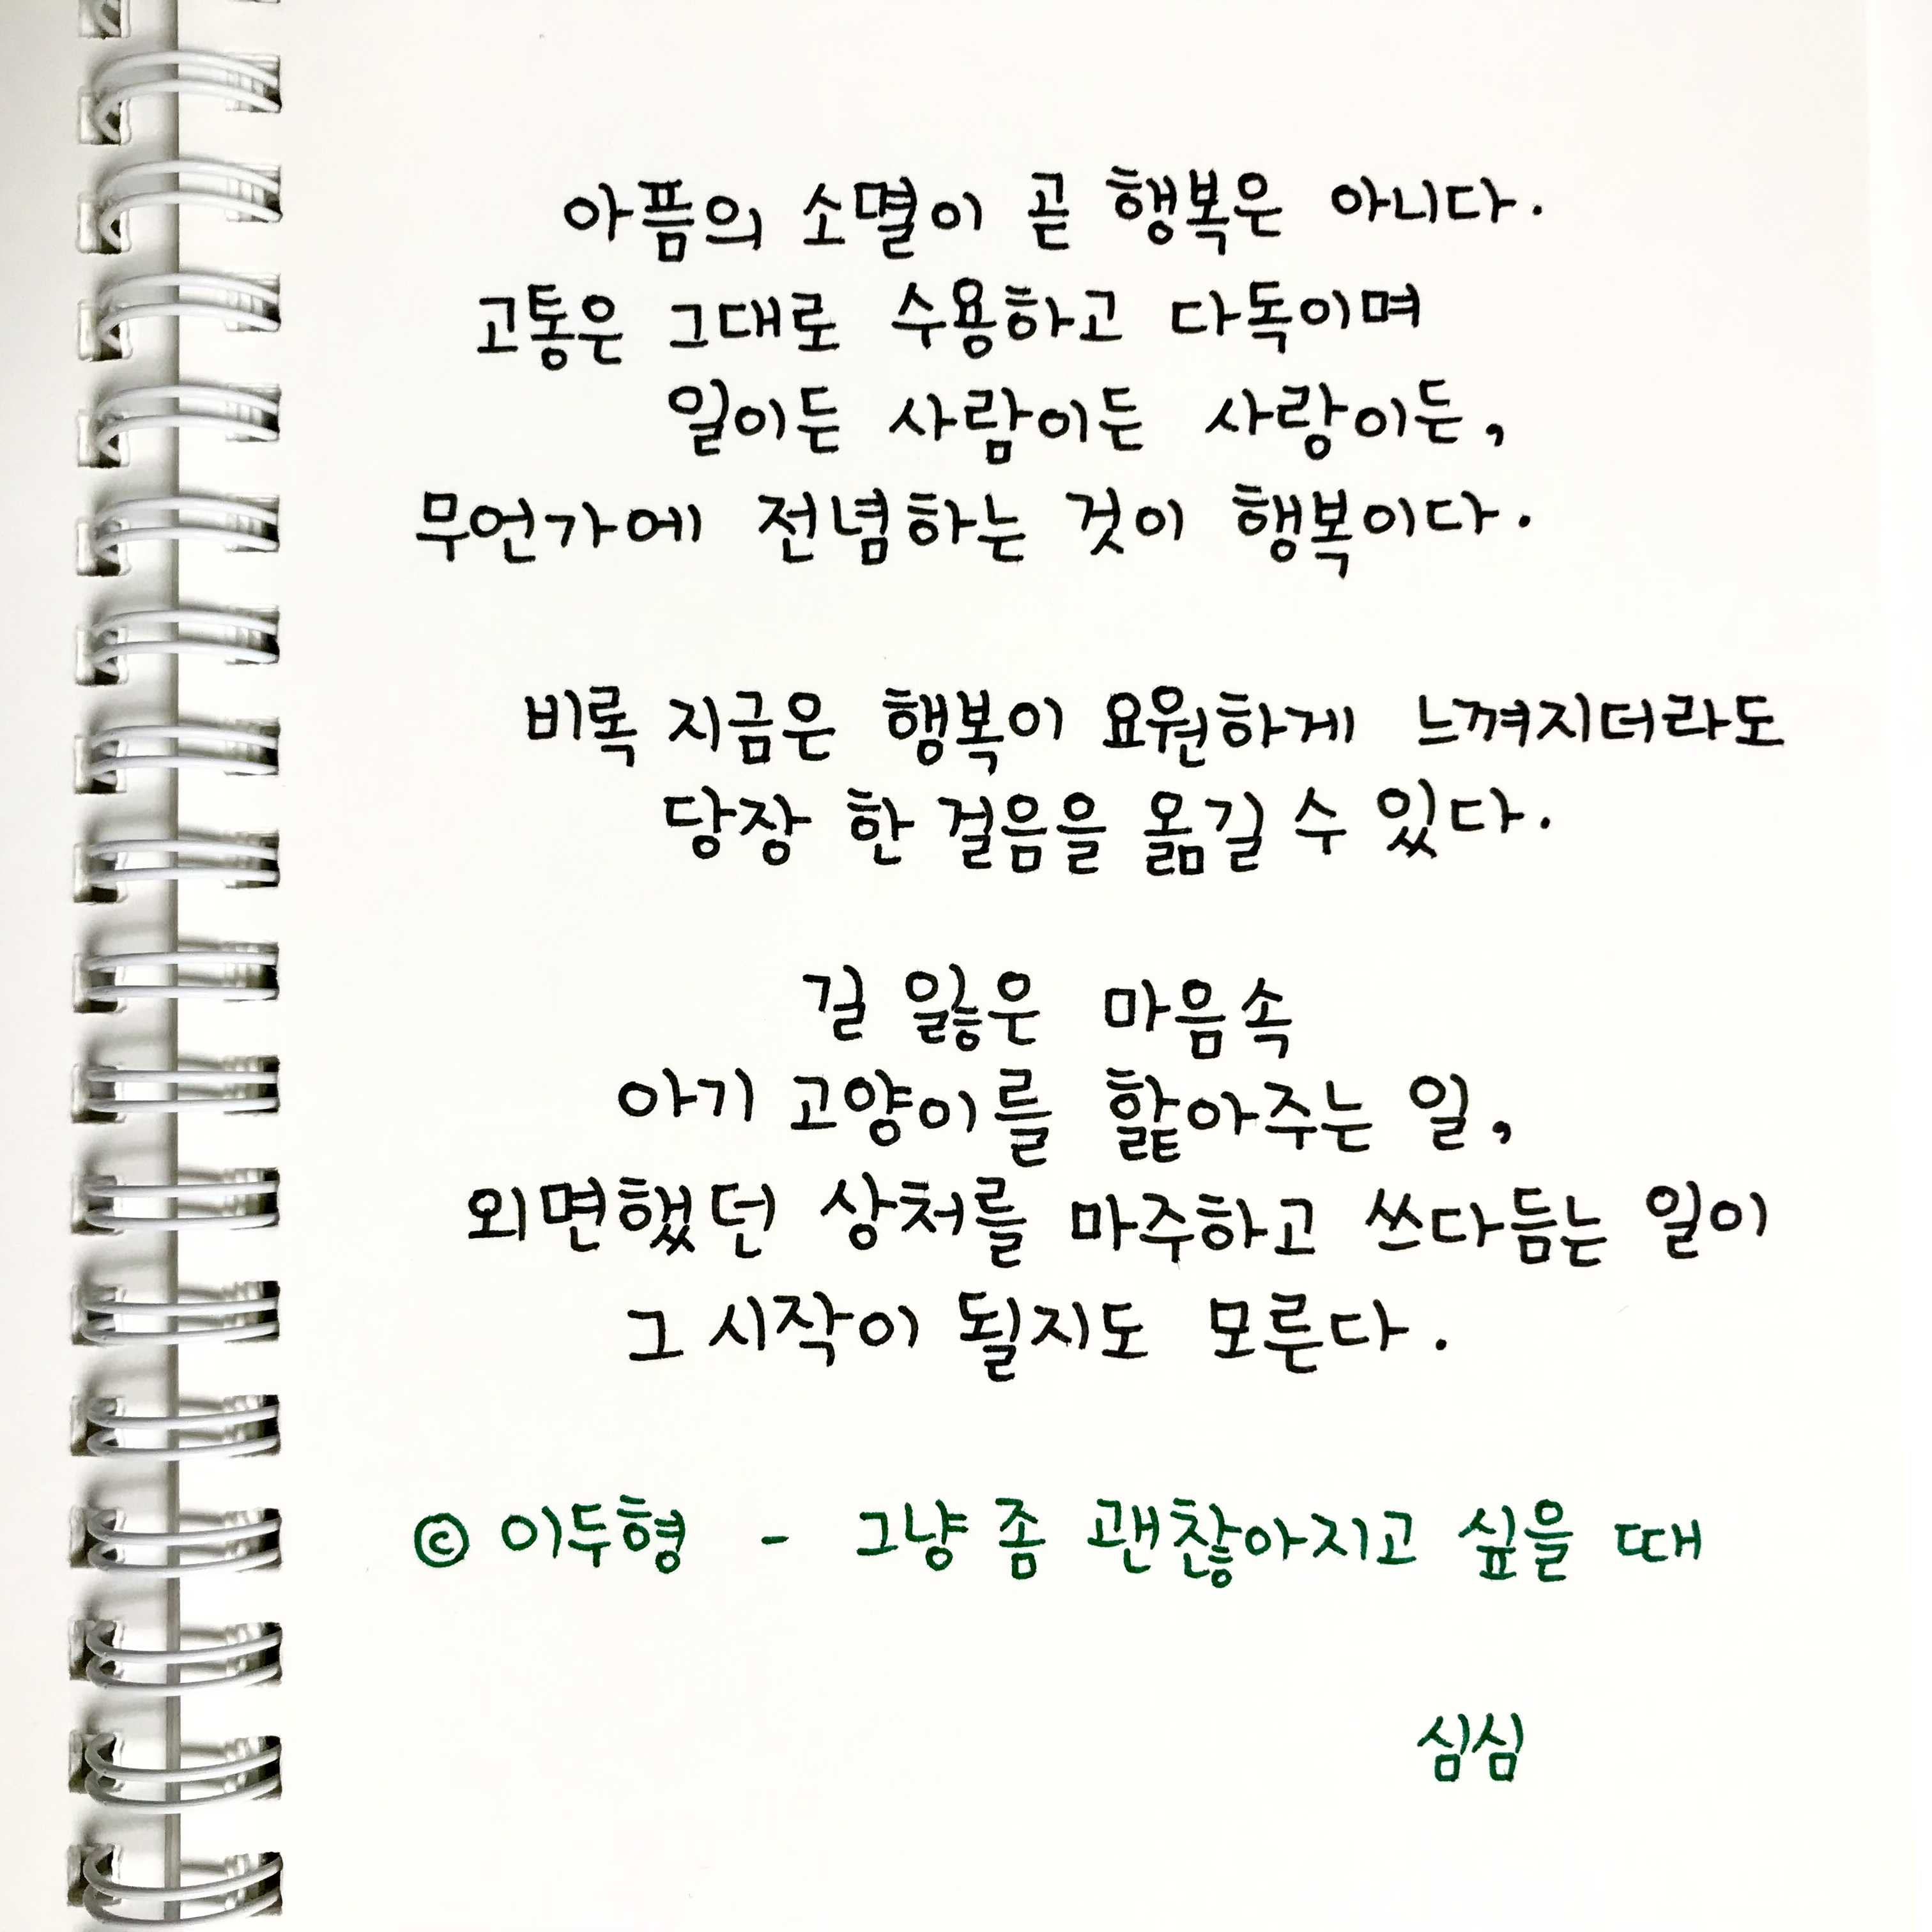 아픔의 소멸이 곧 행복은 아니다.
고통은 그대로 수용하고 다독이며
일이든 사람이든 사랑이든,
무언가에 전념하는 것이 행복이다.
비록 지금은 행복이 요원하게 느껴지더라도
당장 한 걸음을 옮길 수 있다.
길 잃은 마음속
아기 고양이를 핥아주는 일,
외면했던 상처를 마주하고 쓰다듬는 일이
그 시작이 될지도 모른다.
© 이두형 - 그냥 좀 괜찮아지고 싶을 때
심심